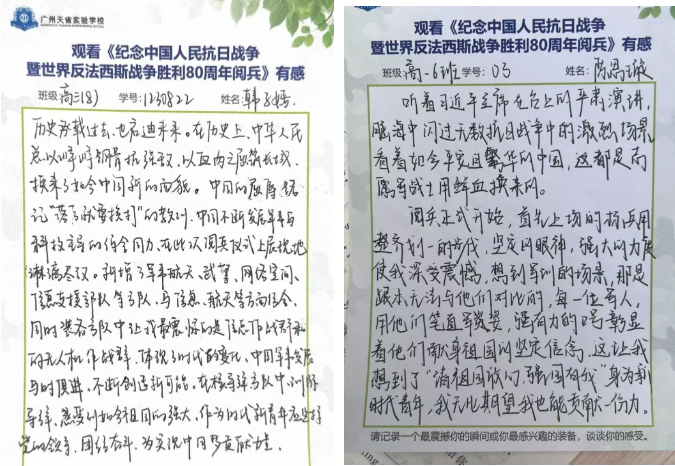 广州天省实验学校
观看《纪念中国人民抗日战争
暨世界反法西斯战争胜利80周年阅兵》有感
班级: 高三(8) 学号: 1230822 姓名: 韩
历史承载过去, 也启迪未来。在历史上, 中华人民
总以铮铮钢骨抗强敌, 以血肉之躯筑长城,
换来了如今中国新的面貌。中国的
记“落了就要挨打”的教训, 中国不断发展军事与
科技, 在此次阅兵仪式上展现地
淋漓尽致。新增了军事航天、武警、网络空间、
信息支援部队等方队, 与信息、航天等方面结合,
同时装备方队中让我最震惊的是
的无人机作战群, 体现了时代的变化, 中国军事发展
与时俱进, 不断创造新可能。在核导弹方队中,
导弹, 感受到如今祖国的强大, 作为时代新青年应坚持
党的领导, 团结奋斗, 为实现中国梦贡献力量。
观看《纪念中国人民抗日战争
暨世界反法西斯战争胜利80周年阅兵》有感
班级: 高一6班 学号: 03 姓名: 陈
听着习近平主席在台上的严肃演讲,
脑海中闪过无数抗日战争中的激烈场景,
看着如今平定且繁华的中国, 这都是而
战士用鲜血换来的。
阅兵正式开始, 首先上场的标兵用
整齐划一的步伐, 坚定的眼神, 强大的力度
使我深受震憾, 想到军训的场景, 那是
跟本无法与他们对比的, 每一位军人,
用他们笔直军姿, 强有力的口号彰显
着他们献身祖国的坚定信念, 这让我
想到了“请祖国放心, 强国有我”身为新
时代青年, 我无比期望我也能贡献一份力。
请记录一个最震撼你的瞬间或你最感兴趣的装备, 谈谈你的感受。